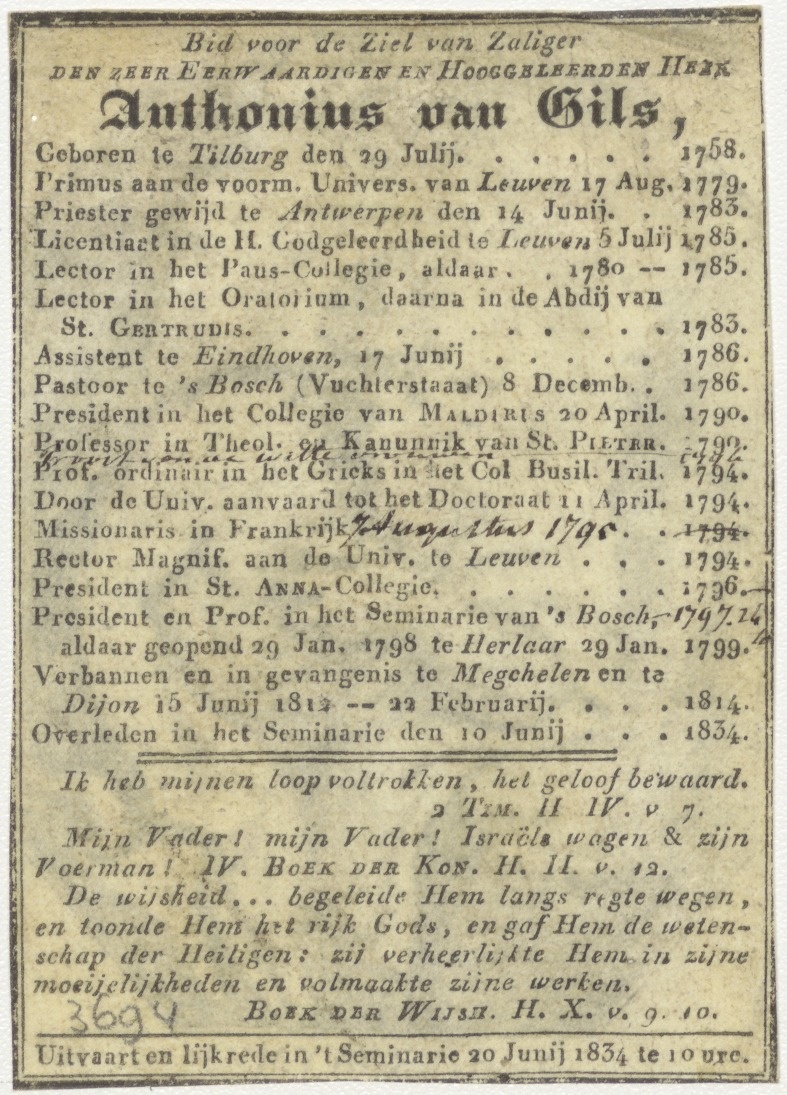 Bid voor de Ziel van Zaliger
DEN ZEER EERWAARDIGEN EN HOOGGELEERDEN HEER
Anthonius van Gils,
Geboren te Tilburg den 29 Julij. . . . . . . 1758.
Primus aan de voorm. Univers. van Leuven 17 Aug. 1779.
Priester gewijd te Antwerpen den 14 Junij. . 1783.
Licentiaat in de H. Godgeleerdheid te Leuven 5 Julij 1785.
Lector in het Paus-Collegie, aldaar. . 1780 -- 1785.
Lector in het Oratorium, daarna in de Abdij van
St. GERTRUDIS. . . . . . . . . . . . . 1783.
Assistent te Eindhoven, 17 Junij . . . . . 1786.
Pastoor te 's Bosch (Vuchterstaaat) 8 Decemb. . 1786.
President in het Collegie van MALDIRIS 20 April. 1790.
Professor in Theol. en Kanunnik van St. PIETER. 1790.
Prof. ordinair in het Grieks in het Col Busil. Tril. 1794.
Door de Univ. aanvaard tot het Doctoraat 11 April. 1794.
Missionaris in Frankrijk 7 Augustus 1795. . 1794.
Rector Magnif. aan de Univ. te Leuven . . . 1794.
President in St. ANNA-Collegie. . . . . . . 1796.
President en Prof. in het Seminarie van 's Bosch, 1797.
aldaar geopend 29 Jan. 1798 te Herlaar 29 Jan. 1799.
Verbannen en in gevangenis te Megchelen en te
Dijon 15 Junij 1812 -- 22 Februarij. . . . 1814.
Overleden in het Seminarie den 10 Junij . . . 1834.
Ik heb mijnen loop voltrokken, het geloof bewaard.
2 TIM. H IV. v 7.
Mijn Vader! mijn Vader! Israëls wagen & zijn
Voerman! IV. BOEK DER KON. H. II. v. 12.
De wijsheid... begeleide Hem langs regte wegen,
en toonde Hem het rijk Gods, en gaf Hem de weten-
schap der Heiligen: zij verheerlijkte Hem in zijne
moeijelijkheden en volmaakte zijne werken.
3694 BOEK DER WIJSH. H. X. v. 9. 10.
Uitvaart en lijkrede in 't Seminarie 20 Junij 1834 te 10 ure.